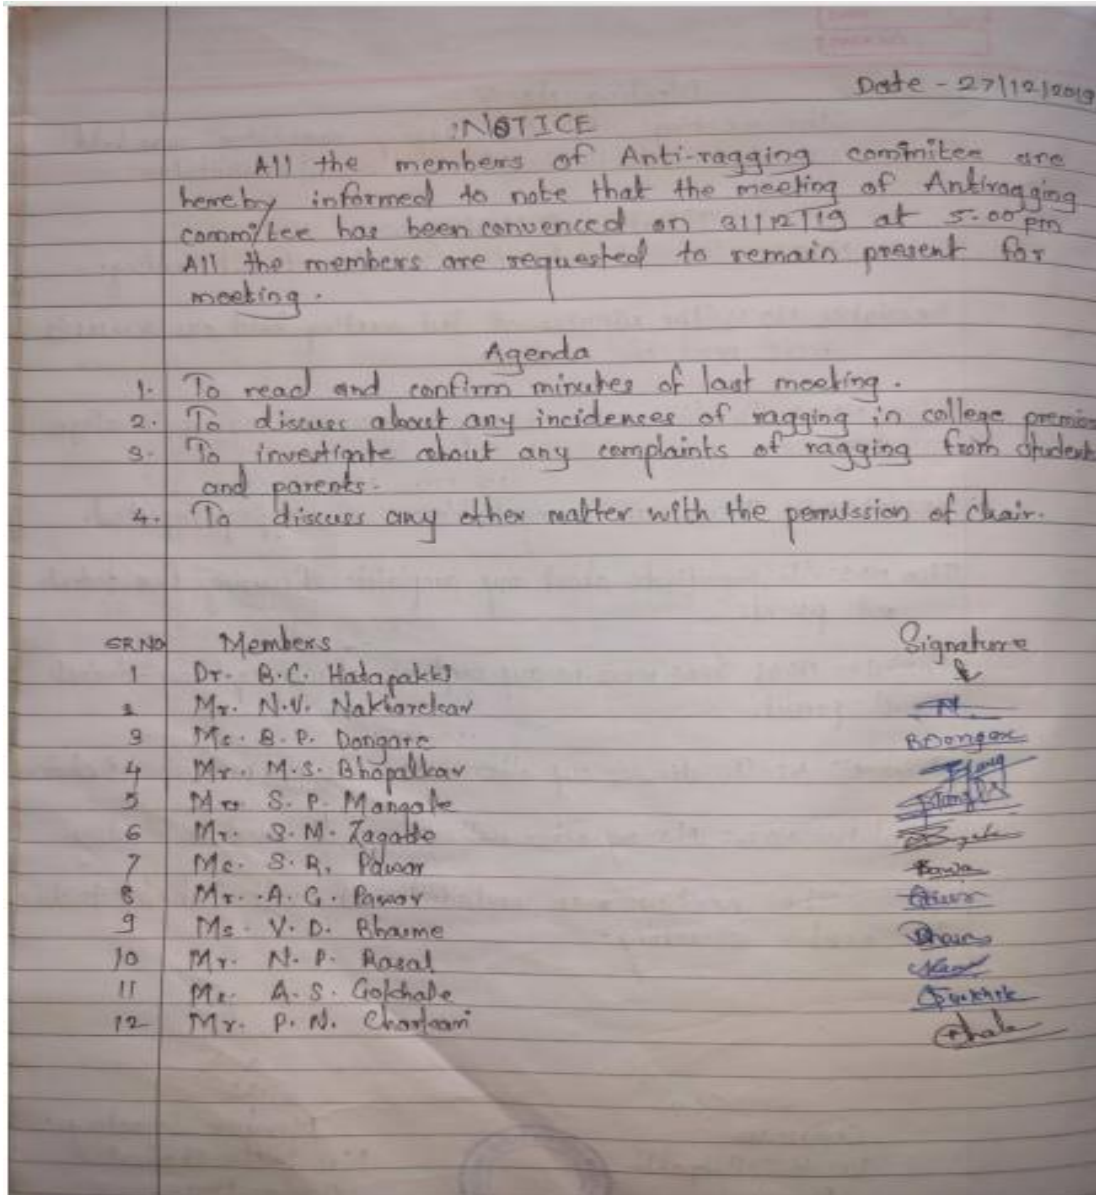 Date - 27/12/2019
:NOTICE
All the members of Anti-ragging commitee are
hereby informed to note that the meeting of Antiragging
committee has been convenced on 31/12/19 at 5.00 pm
All the members are requested to remain present for
meeting.
Agenda
1. To read and confirm minutes of last meeting.
2. To discuss about any incidences of ragging in college premises
3. To investigate about any complaints of ragging from students
and parents.
4. To discuss any other matter with the permission of chair.
SR.NO Members Signature
1 Dr. B.C. Hatapakki
2 Mr. N.V. Naktarekar
3 Ms. B.P. Dongare BDongare
4 Mr. M.S. Bhopalkar
5 Mrs S.P. Mangale
6 Mr. S.M. Zagade
7 Ms. S.R. Pawar
8 Mr. A.G. Pawar
9 Ms. V.D. Bhaime
10 Mr. N.P. Rasal
11 A.S. Gokhale
12 Mr. P.N.